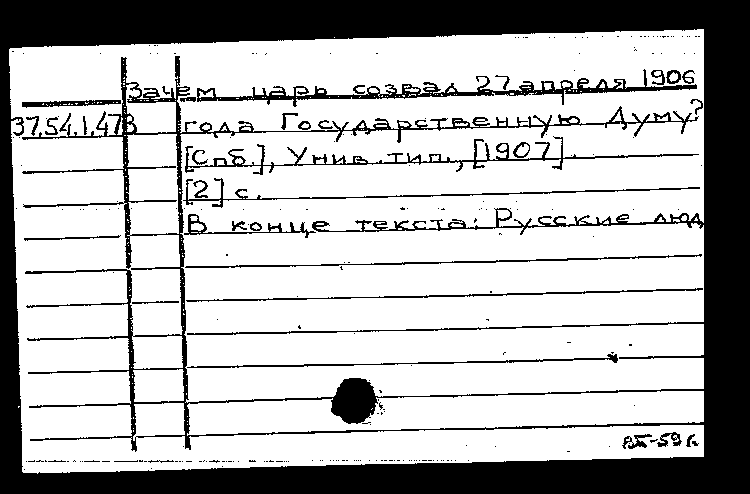 Зачем царь созвал 27 апреля 1906
37.54.1.473 года Государственную Думу?
[Спб.], Унив. тип., [1907].
[2] с.
В конце текста: Русские люд